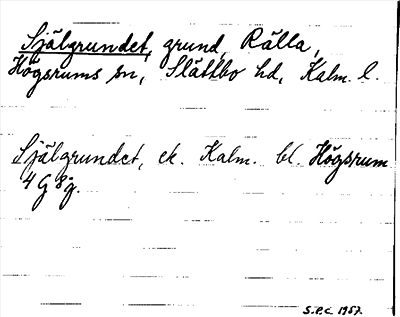 Själgrundet, grund, Rälla,
Högsrums sn, Slättbo hd, Kalm. l.
Själgrundet, ek. Kalm. bl. Högsrum
4 G 8 g.
S.P.C. 1957.